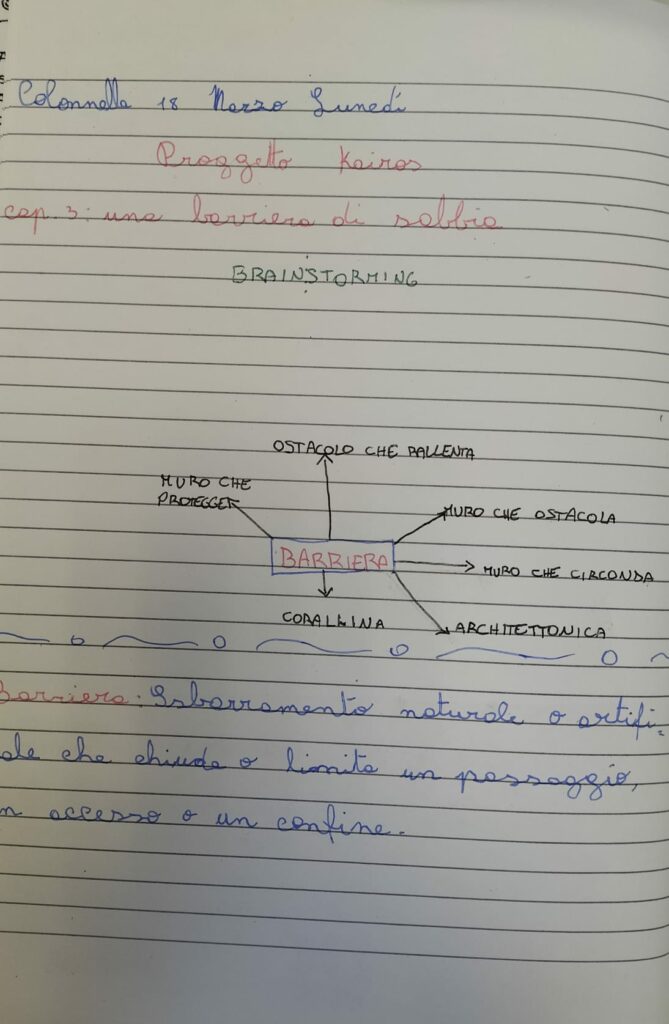 Colonnella 18 Marzo Lunedì
Proggetto Kairos
cap. 3: una barriera di sabbia
BRAINSTORMING
OSTACOLO CHE RALLENTA
MURO CHE
PROTEGGE
MURO CHE OSTACOLA
BARRIERA
MURO CHE CIRCONDA
CORALLINA
ARCHITETTONICA
Barriera: Sbarramento naturale o artifi=
ale che chiude o limita un passaggio,
n accesso o un confine.